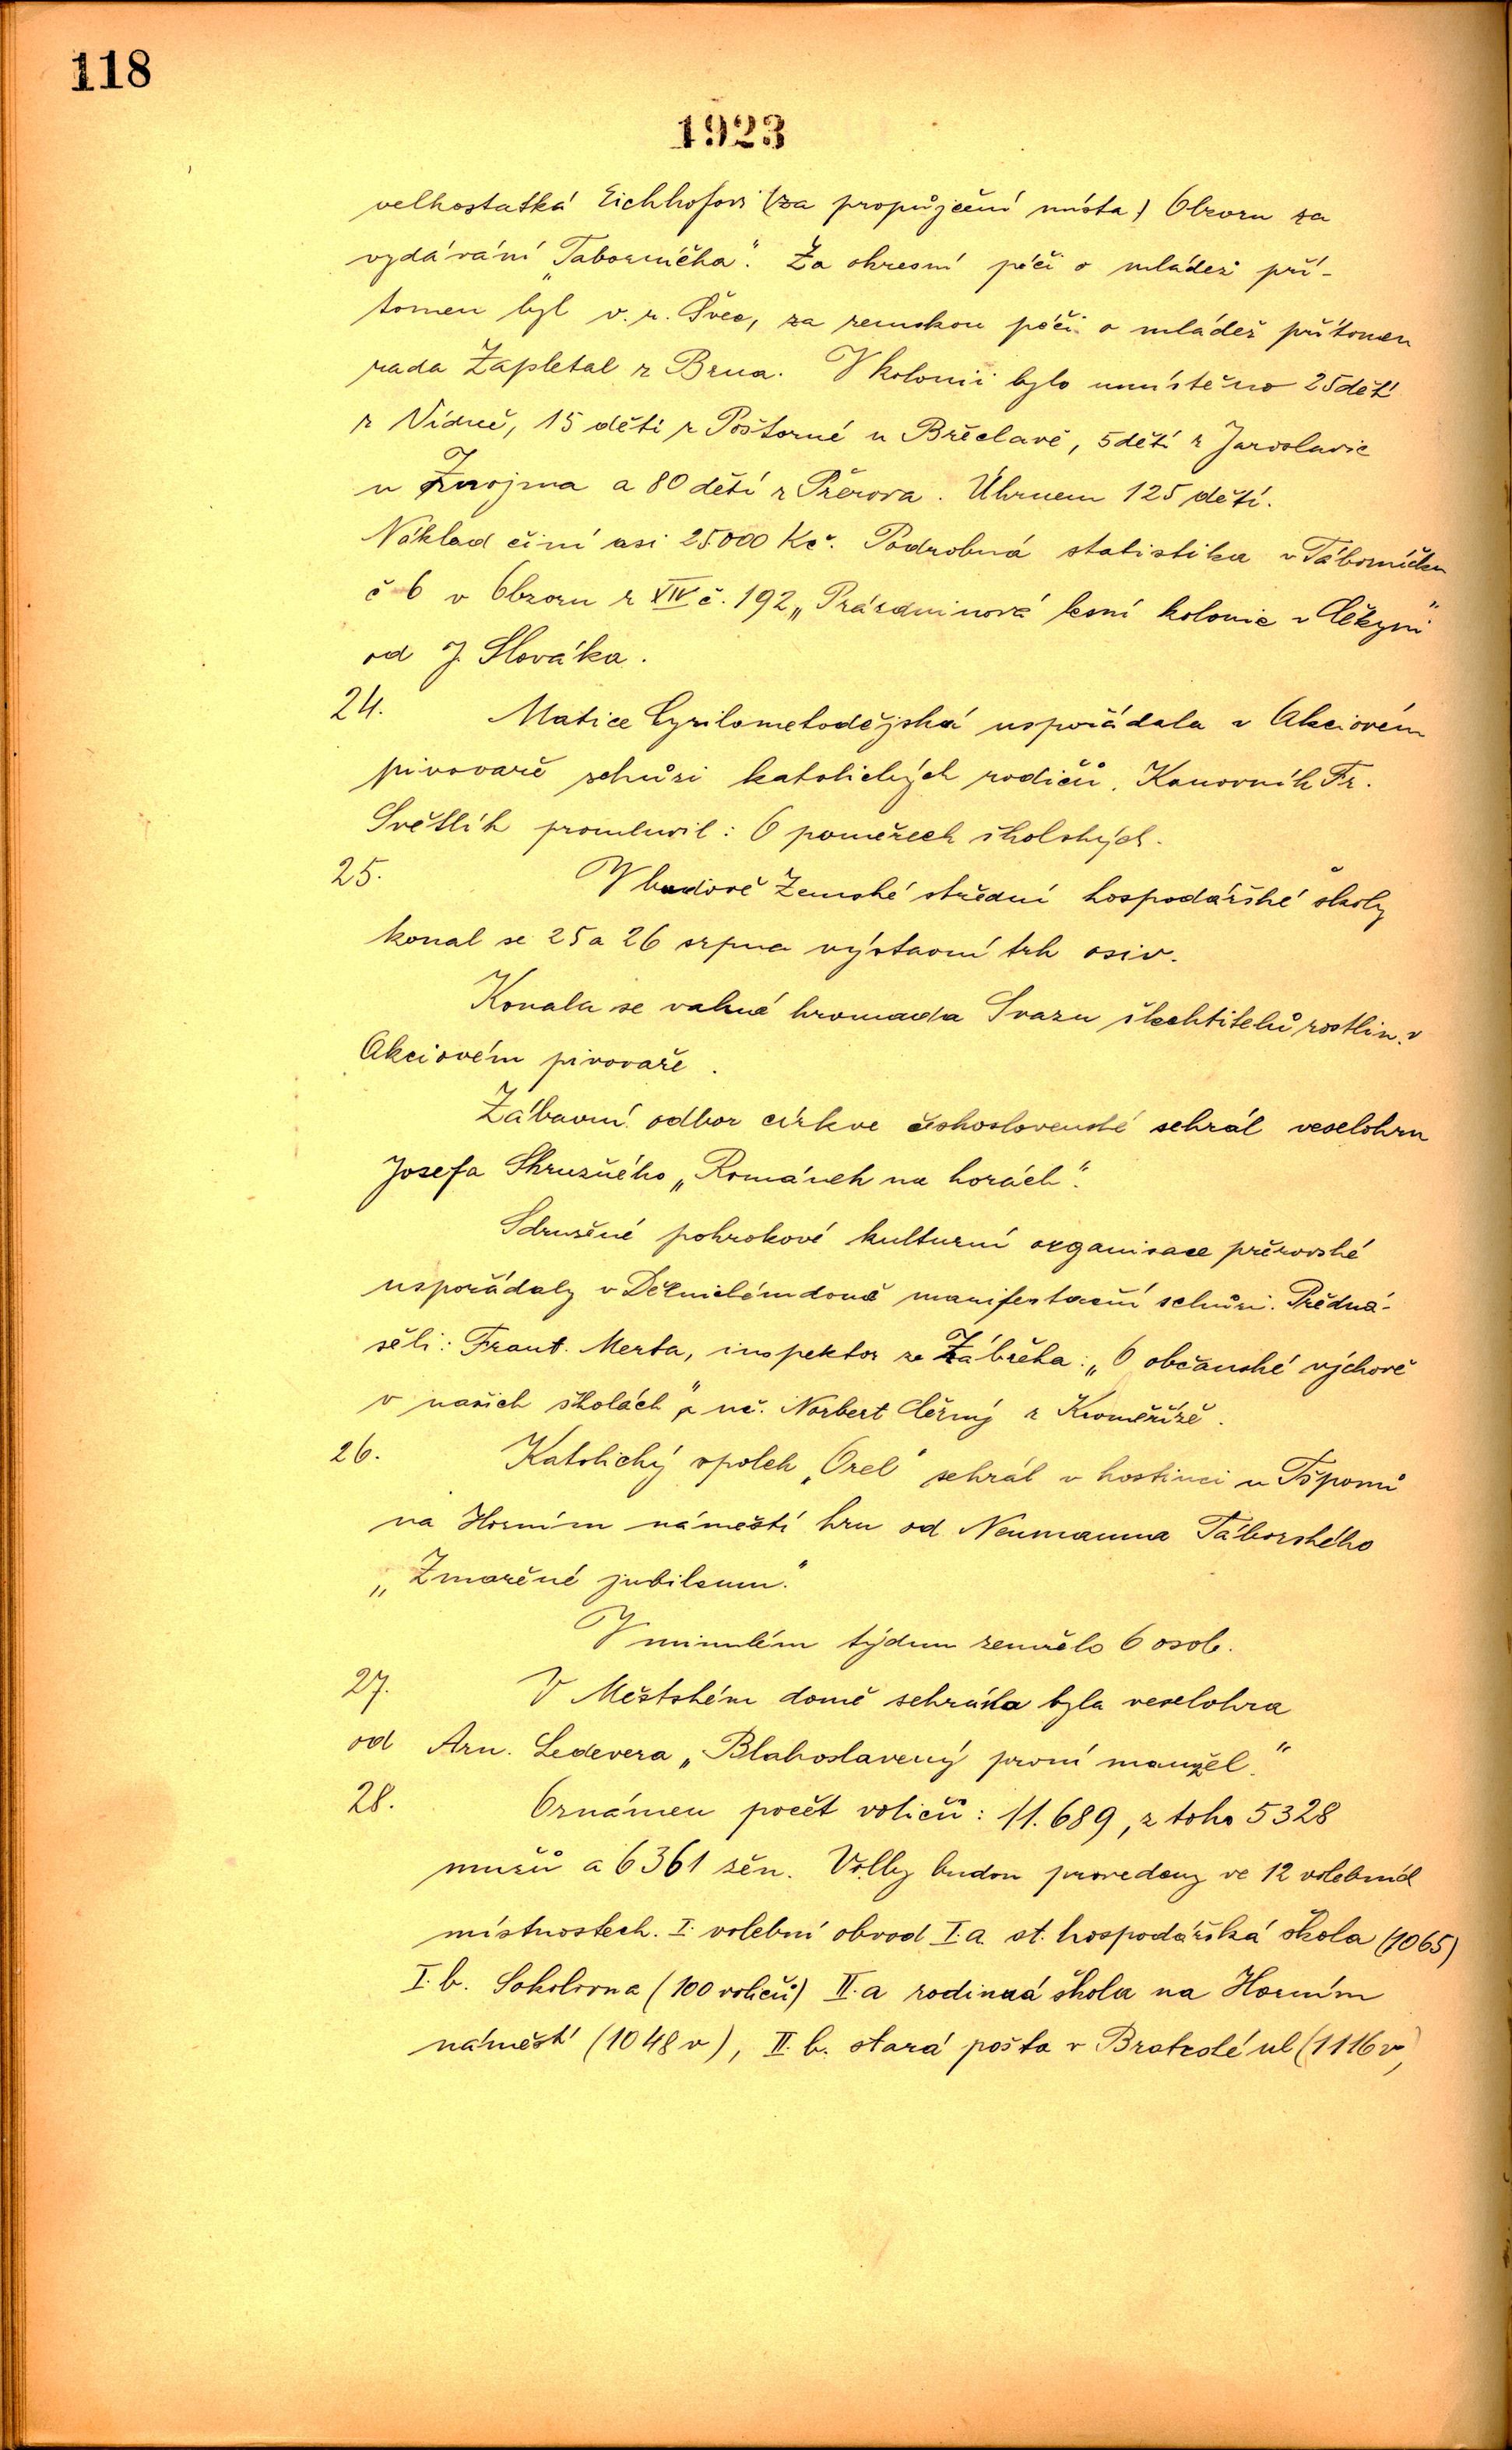 118
1923
velkostatká Eichhofovi (za propůjčení místa) Obzoru za
vydávání „Taborníčka“. Za okresní péči o mládež pří-
tomen byl v. r. Švec, za zemskou péči o mládež přítomen
rada Zapletal z Brna. V kolonii bylo umístěno 25 dětí
z Vídně, 15 dětí z Poštorné u Břeclavě, 5 dětí z Jaroslavic
u Znojma a 80 dětí z Přerova. Úhrnem 125 dětí.
Náklad činí asi 25000 Kč. Podrobná statistika v Táborníčku
č 6 v Obzoru r XIV č. 192 „Prázdninová lesní kolonie v Čekyni“
od J. Slováka.
24. Matice Cyrilometodějská uspořádala v Akciovém
pivovaře schůzi katolických rodičů. Kanovník Fr.
Světlík promluvil: O poměrech školských.
25. V budově Zemské střední hospodářské školy
konal se 25 a 26 srpna výstavní trh osiv.
Konala se valná hromada Svazu šlechtitelů rostlin v
Akciovém pivovaře.
Zábavní odbor církve československé sehrál veselohru
Josefa Skružného „Románek na horách“.
Sdružené pokrokové kulturní organisace přerovské
uspořádaly v Dělnickém domě manifestační schůzi. Předná-
šeli: Frant. Merta, inspektor ze Zábřeha: „O občanské výchově
v našich školách“ a uč. Norbert Černý z Kroměříže.
26. Katolický spolek „Orel“ sehrál v hostinci u
na Horním náměstí hru od Neumanna Táborského
„Zmařené jubileum.“
V minulém týdnu zemřelo 6 osob.
27. V Městském domě sehrána byla veselohra
od Arn. Ledevera „Blahoslavený první manžel.“
28. Oznámen počet voličů: 11.689, z toho 5328
mužů a 6361 žen. Volby budou provedeny ve 12 volebních
místnostech. I. volební obvod I.a. st. hospodářská škola (1065)
I.b. Sokolovna (100 voličů) II.a rodinná škola na Horním
náměstí (1048 v), II.b. stará pošta v Bratrské ul (1116 v,